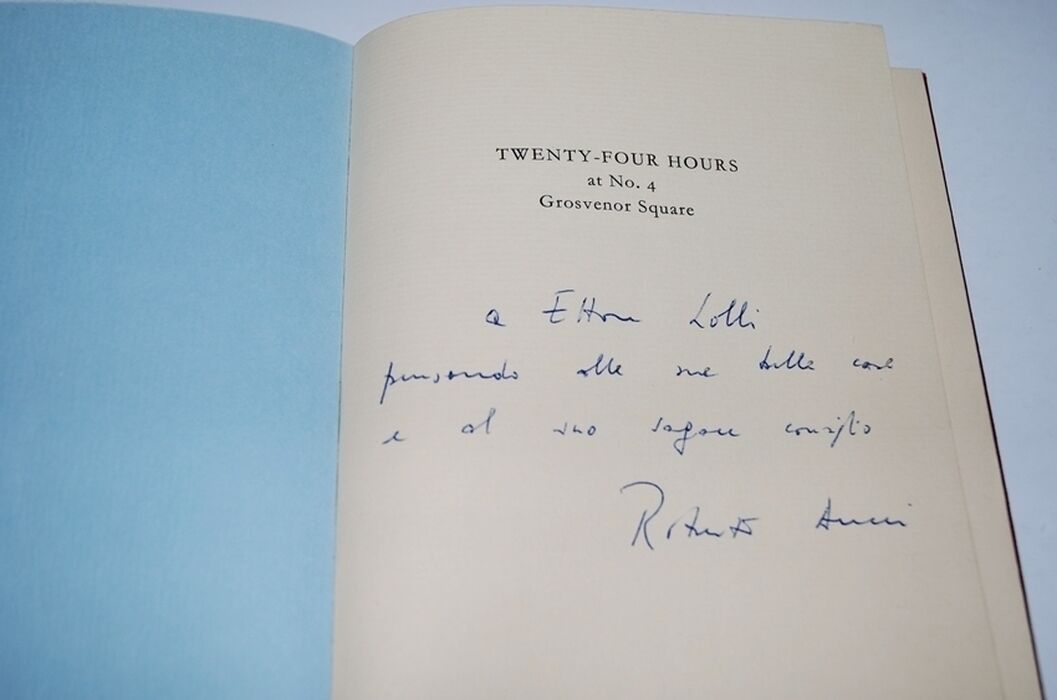 TWENTY-FOUR HOURS
at No. 4
Grosvenor Square
a Ettore Lolli
pensando alle sue belle cose
e al suo sagace consiglio
Roberto Ducci